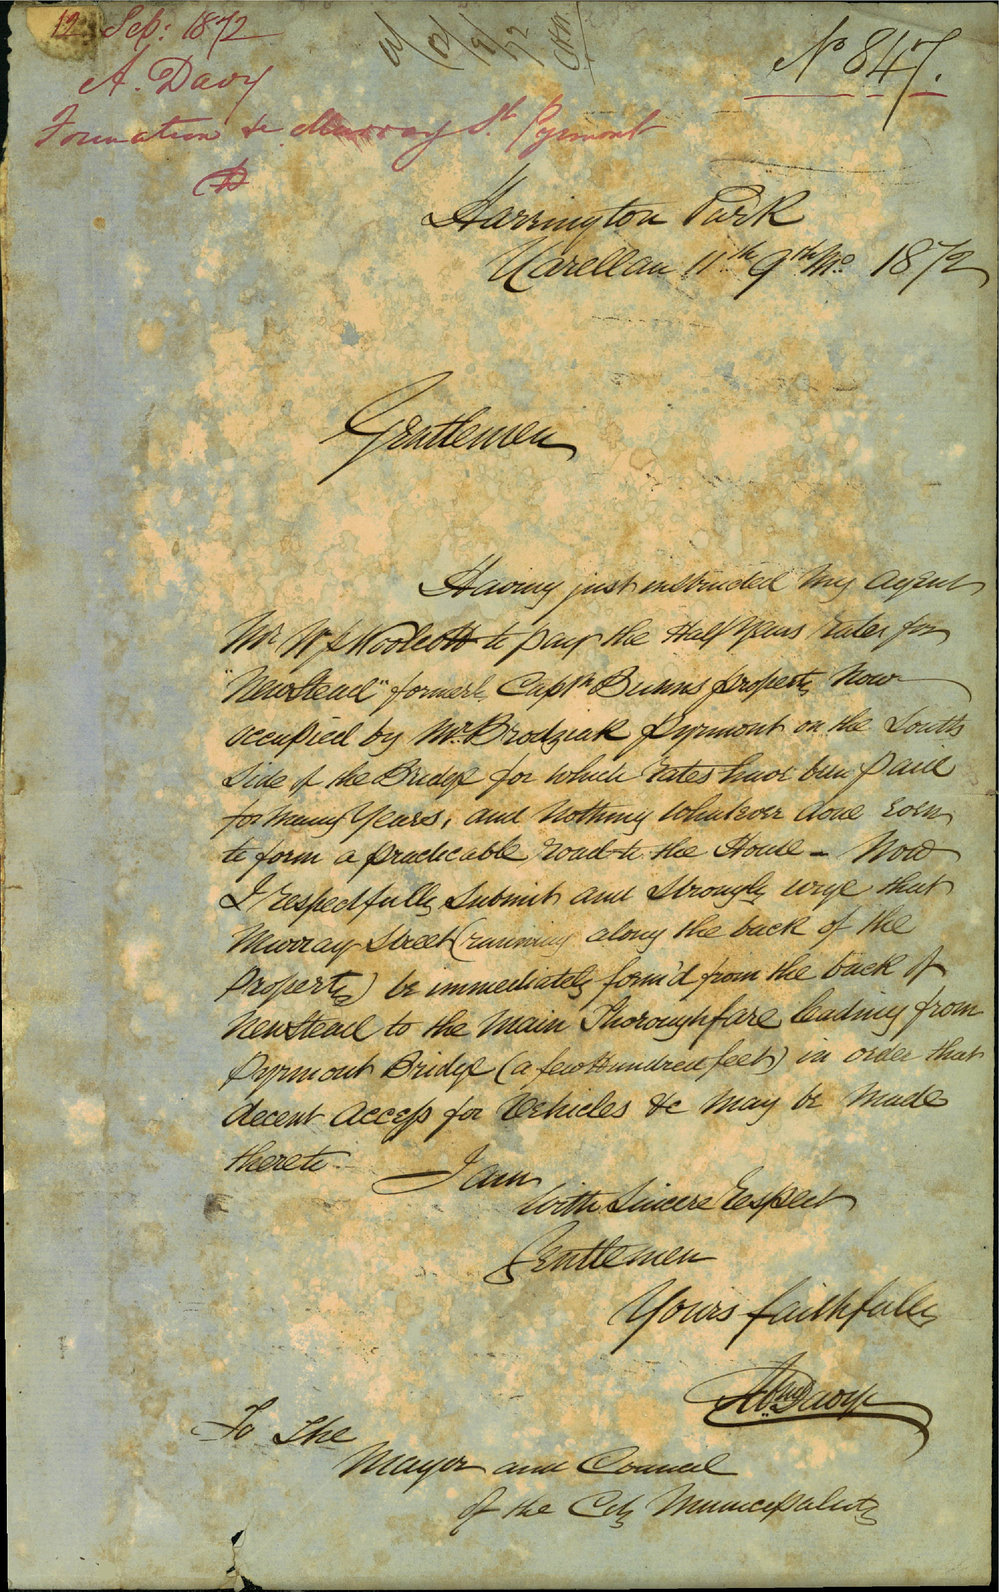 12 Sep: 1872
A. Davy
Formation &c Murray St. Pyrmont
No 847.
Harrington Park
Narellan 11th 9th Mo 1872
Gentlemen
Having just instructed my Agent
Mr. W J Woolcott to pay the Half Years Rates for
"Newstead" formerly Captn Burns property now
occupied by Mr. Brodziak Pyrmont on the South
Side of the Bridge for which Rates have been paid
for many Years, and Nothing Whatever done even
to form a practicable road to the House - Now
I respectfully Submit and Strongly urge that
Murray Street (running along the back of the
Property) be immediately form'd from the back of
Newstead to the Main Thoroughfare leading from
Pyrmont Bridge (a few Hundred feet) in order that
decent access for Vehicles &c may be made
thereto.
I am
With Sincere Respect
Gentlemen
Yours faithfully
Davy
To The
Mayor and Council
of the City Municipality